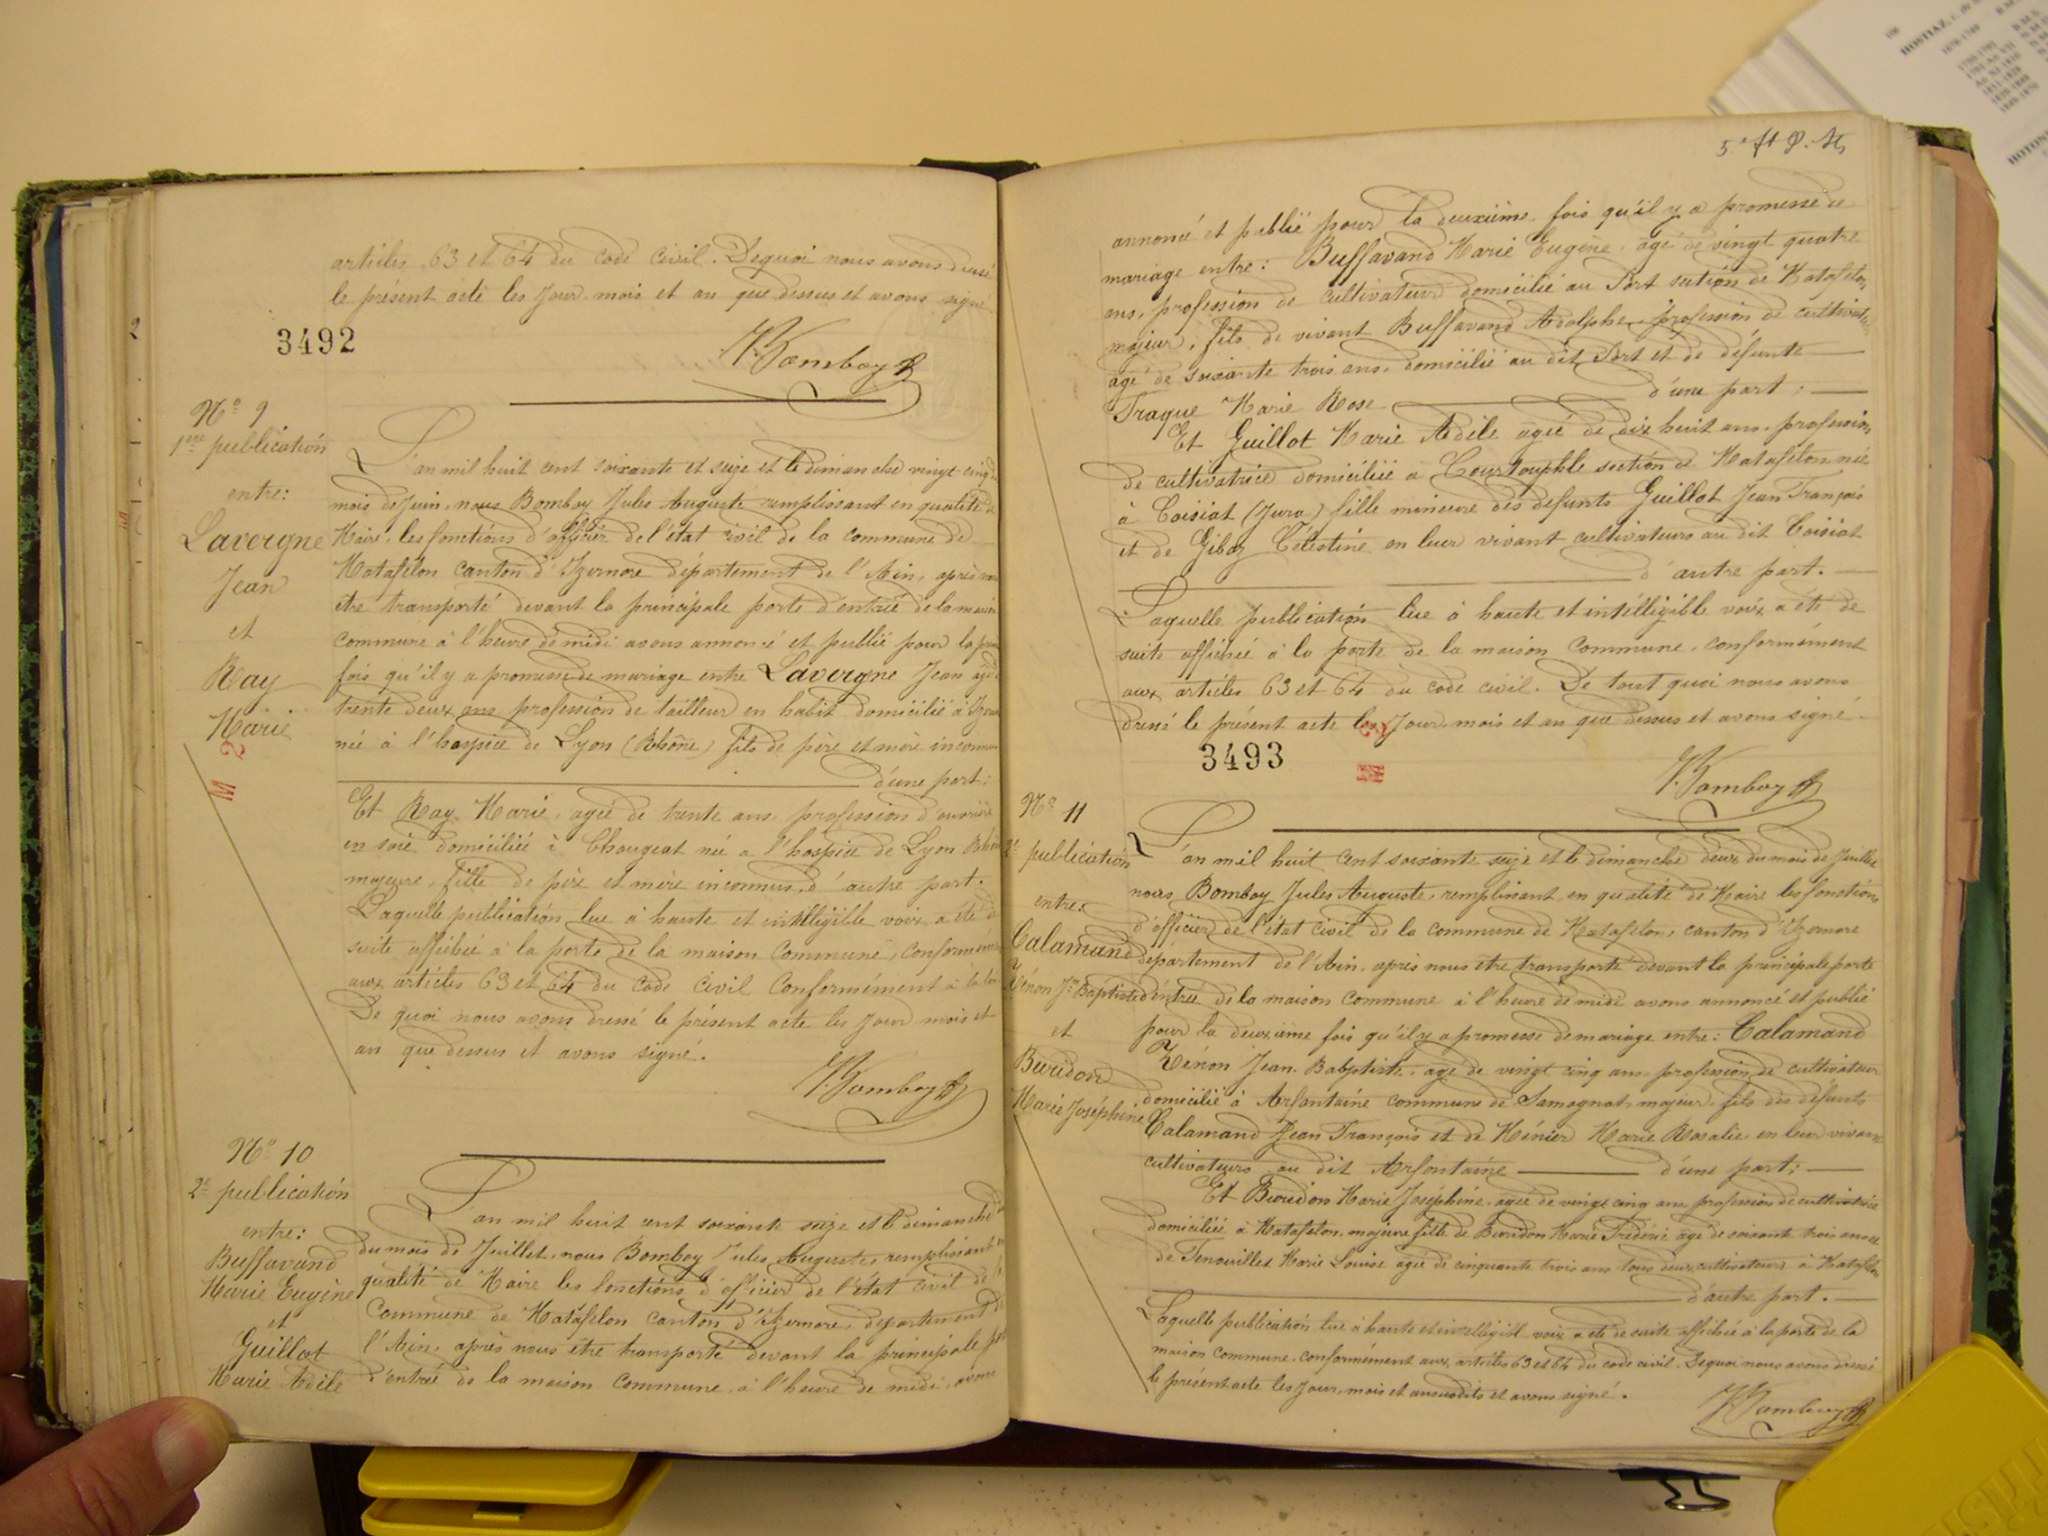 articles 63 et 64 du code civil. Dequoi nous avons dressé
le présent acte les jour mois et an que dessus et avons signé
3492
J. Bomboy
2
N° 9
1ère publication
entre:
Lavergne
Jean
et
Ray
Marie
M 2
L'an mil huit cent soixante et seize et le dimanche vingt cinq du
mois de Juin, nous Bomboy Jules Auguste remplissant en qualité de
Maire, les fonctions d'officier de l'état civil de la commune de
Matafelon canton d'Izernore département de l'Ain, après nous
être transporté devant la principale porte d'entrée de la maison
commune à l'heure de midi avons annoncé et publié pour la
fois qu'il y a promesse de mariage entre Lavergne Jean agé
trente deux ans profession de tailleur en habit domicilié à
né à l'hospice de Lyon (Rhône) fils de père et mère inconnus
d'une part:
Et Ray Marie, agée de trente ans, profession d'ouvrière
en soie domiciliée à Chougeat née a l'hospice de Lyon Rhône
majeure, fille de père et mère inconnus, d'autre part.
Laquelle publication lue à haute et intelligible voix a été de
suite affichée à la porte de la maison commune, conformément
aux articles 63 et 64 du code civil conformément à la loi
De quoi nous avons dressé le présent acte les jour mois et
an que dessus et avons signé.
J. Bomboy
N° 10
2e publication
entre:
Buffavand
Marie Eugène
et
Guillot
Marie Adèle
L'an mil huit cent soixante seize et le dimanche
du mois de Juillet, nous Bomboy Jules Auguste, remplissant en
qualité de Maire les fonctions d'officier de l'état civil de
commune de Matafelon canton d'Izernore, departement de
l'Ain, après nous être transporté devant la principale
d'entrée de la maison commune, à l'heure de midi, avons
annoncé et publié pour la deuxième fois qu'il y a promesse de
mariage entre: Buffavand Marie Eugène, agé de vingt quatre
ans, profession de cultivateur domicilié au Port section de Matafelon,
majeur, fils de vivant Buffavand Adolphe, profession de cultivateur
agé de soixante trois ans, domicilié au dit Port et de défunte
Traque Marie Rose d'une part;
Et Guillot Marie Adèle agée de dix huit ans, profession
de cultivatrice domiciliée à Courtouphle section de Matafelon née
à Coisiat (Jura) fille mineure des defunts Guillot Jean François
et de Giboz Célestine en leur vivant cultivateurs au dit Coisiat
d'autre part.
Laquelle publication lue à haute et intelligible voix a été de
suite affichée à la porte de la maison commune, conformément
aux articles 63 et 64 du code civil. De tout quoi nous avons
dressé le présent acte les jour, mois et an que dessus et avons signé.
3493
M
J. Bomboy
N° 11
2e publication
entre:
Calamand
Zénon Jn Baptiste
et
Buridon
Marie Joséphine
L'an mil huit cent soixante seize et le dimanche deux du mois de Juillet
nous Bomboy Jules Auguste, remplissant en qualité de Maire les fonctions
d'officier de l'état civil de la commune de Matafelon, canton d'Izernore
département de l'Ain, après nous être transporté devant la principale porte
d'entrée de la maison commune à l'heure de midi avons annoncé et publié
pour la deuxième fois qu'il y a promesse de mariage entre: Calamand
Zénon Jean Babptiste, agé de vingt cinq ans, profession de cultivateur
domicilié à Arfontaine commune de Samognat, majeur, fils des défunts
Calamand Jean François et de Ménier Marie Rosalie, en leur vivant
cultivateurs au dit Arfontaine d'une part;
Et Buridon Marie Joséphine, agée de vingt cinq ans, profession de cultivatrice
domiciliée à Matafelon, majeure fille de Buridon Marie Frédéric agé de soixante trois ans et
de Tenouillet Marie Louise agée de cinquante trois ans tous deux cultivateurs à Matafelon
d'autre part.
Laquelle publication lue à haute et intelligible voix a été de suite affichée à la porte de la
maison commune, conformément aux articles 63 et 64 du code civil. Dequoi nous avons dressé
le présent acte les jour, mois et an susdits et avons signé.
J. Bomboy